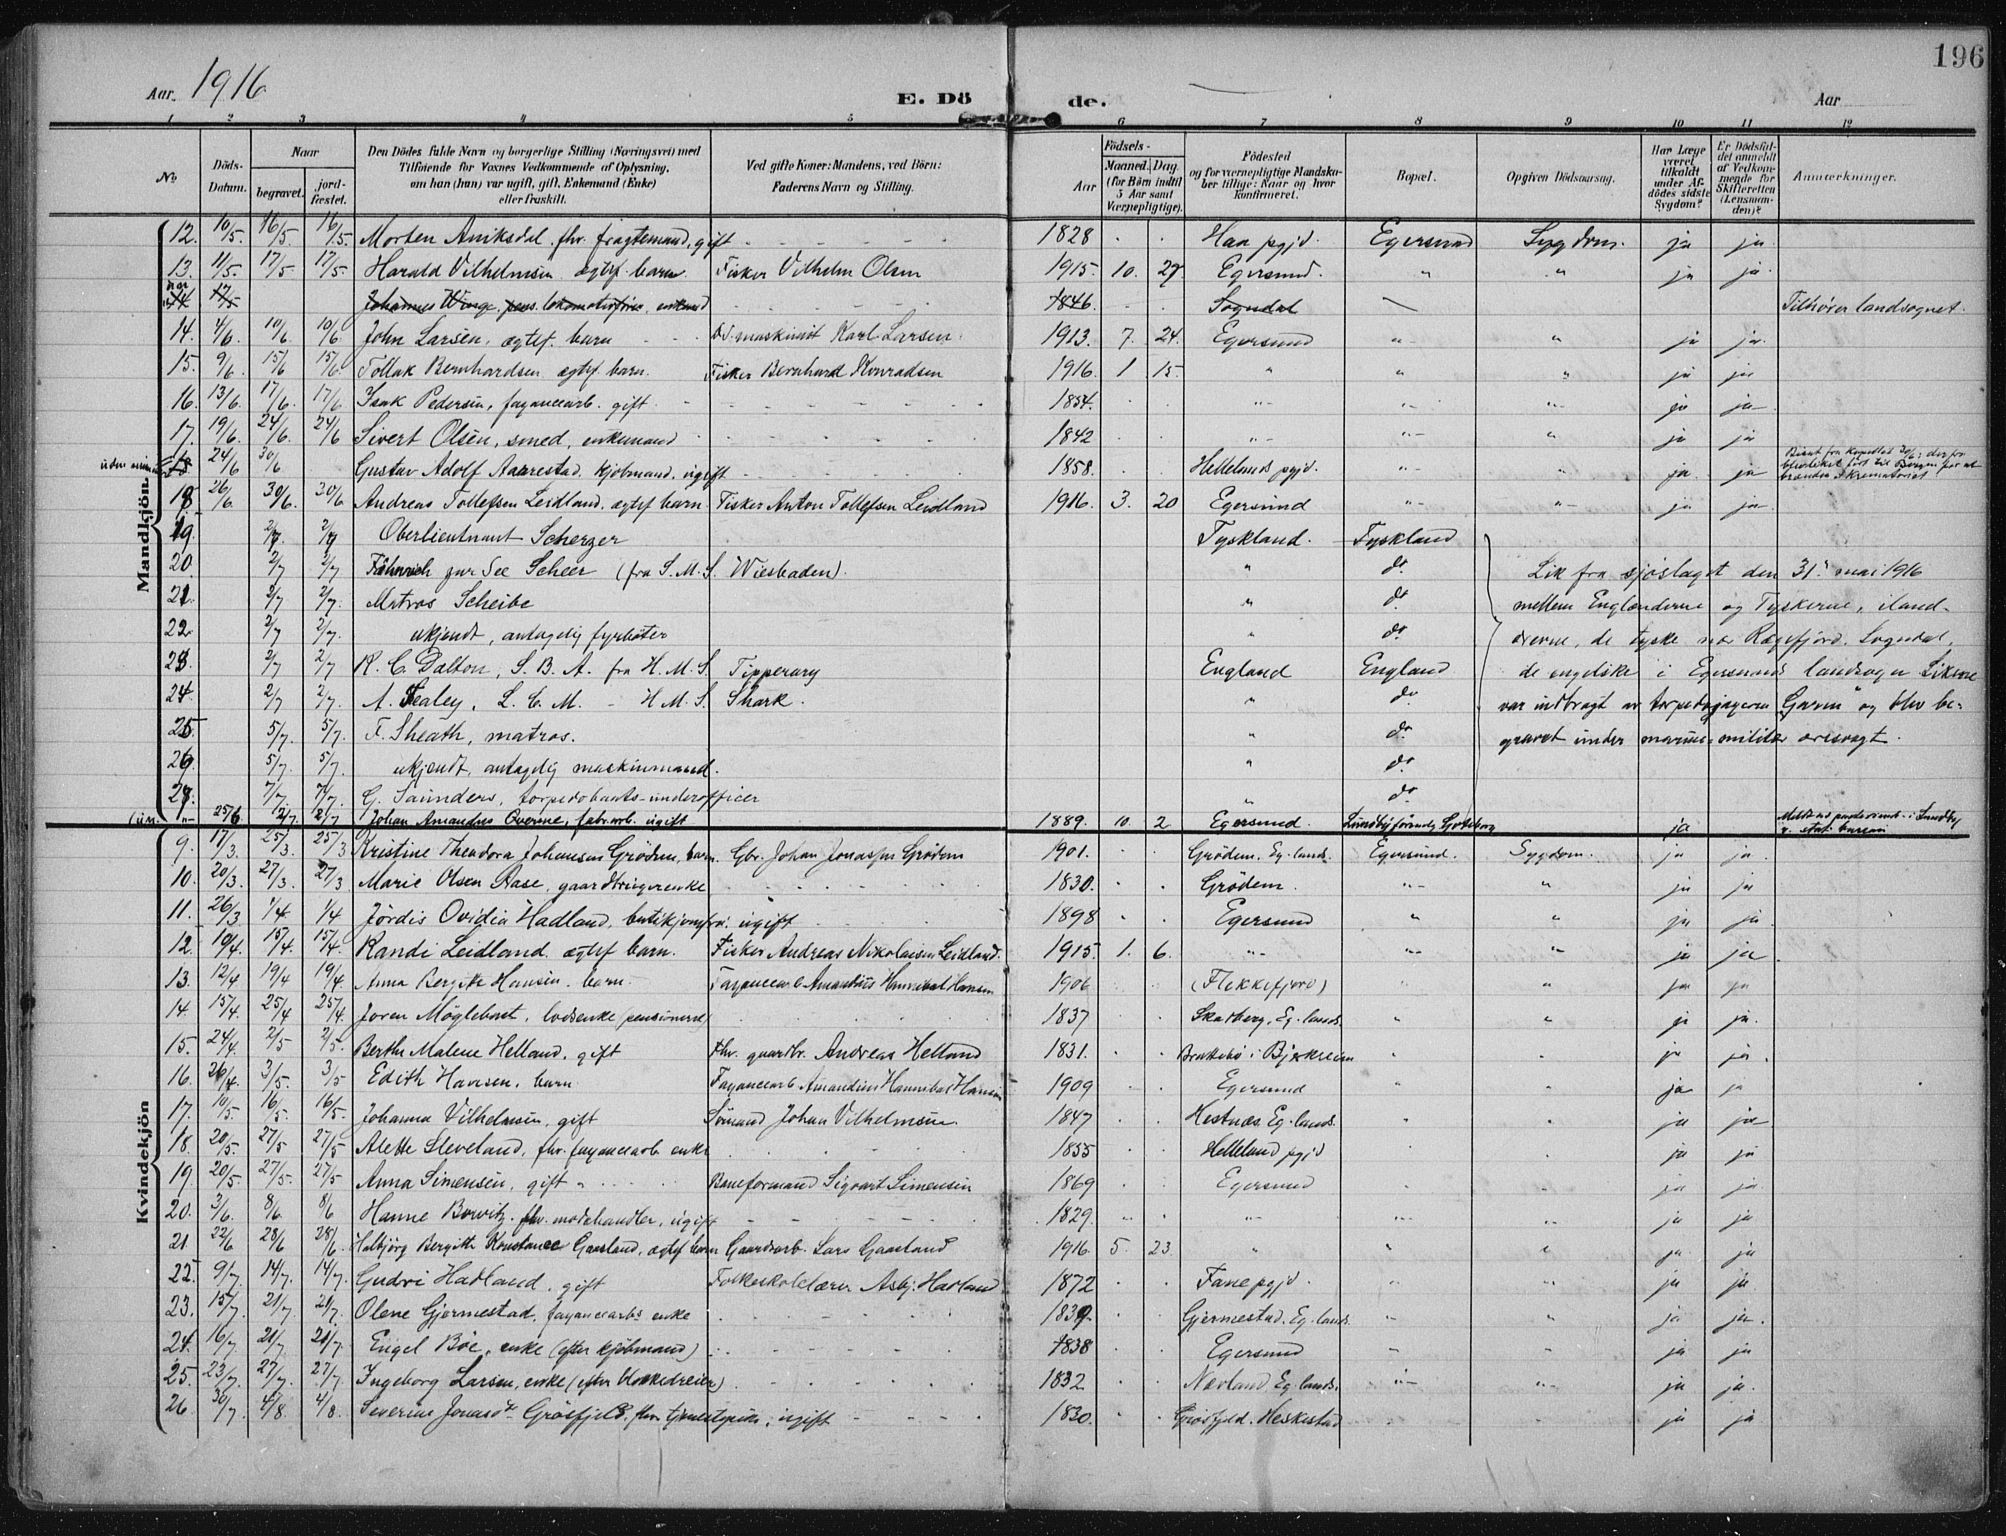 196
Aar. 1916
E. Dö de.
Aar
1 2 3 4 5 6 7 8 9 10 11 12
No.
Döds-Datum.
Naar
begravet.
jord-fæstet.
Den Dödes fulde Navn og borgerlige Stilling (Næringsvei) med
Tilföiende for Voxnes Vedkommende af Oplysning,
om han (hun) var ugift, gift, Enkemand (Enke)
eller fraskilt.
Ved gifte Koner: Mandens, ved Börn:
Faderens Navn og Stilling.
Födsels-
Aar
Maaned. Dag.
(for Börn indtil
5 Aar samt
Værnepligtige).
Födested
og for værnepligtige Mandska-
ber tillige: Naar og hvor
konfirmeret.
Bopæl.
Opgiven Dödsaarsag.
Har Læge
været
tilkaldt
under Af-
dödes sidste
Sygdom?
Er Dödsfal-
det anmeldt
af Vedkom-
mende for
Skifteretten
(Lensman-
den)?
Anmærkninger.
Mandkjön.
12. 10/5. 16/5 16/5. Morten Aniksdal, fhv. fragtemand, gift 1828 Haa pgjd. Egersund Sygdom. ja ja
13. 11/5. 17/5 17/5 Harald Vilhelmsen ægtef. barn Fisker Vilhelm Olsen 1915. 10. 27. Egersund. " " ja ja
14 12/5 Johannes Winge, pens. lokomotivfører, enkemand 1846. Sogndal Tilhører landsognet.
14. 4/6. 10/6 10/6 John Larsen, ægtef. barn maskinist Karl Larsen. 1913. 7. 24. Egersund " " ja ja
15. 9/6. 15/6 15/6 Tollak Bernhardsen ægtef. barn. Fisker Bernhard Konradsen 1916. 1 15. " " " ja ja
16. 13/6. 17/6. 17/6 Isak Pedersen, fayancearb. gift 1854. " " " ja ja
17. 19/6. 24/6. 24/6 Sivert Olsen, smed, enkemand 1842 " " " ja ja
24/6 30/6 Gustav Adolf Aarrestad, kjøbmand, ugift 1858. Hellelands pgjd. " " ja. ja
18 26/6. 30/6. 30/6 Andreas Tollefsen Leidland, ægtef. barn Fisker Anton Tollefsen Leidland 1916. 3. 20 Egersund " " ja ja
19. 2/7. 2/7 Oberlieutnant Scherzer Tyskland. Tyskland
20. 2/7 2/7. Fähnrich zur See Scheer (fra S.M.S. Wiesbaden). " do. Lik fra sjøslaget den 31. mai 1916
21. 2/7 2/7. Matros Scheibe " do mellem Englænderne og Tyskerne, iland-
22. 2/7 2/7. ukjendt, antagelig fyrbøter " do. drevne, de tyske nær Rægefjord, Sogndal,
23. 2/7 2/7 K. C. Dalton, S. B. A. fra H. M. S. Tipperary England England de engelske i Egersunds landsogn. Likene
24. 2/7 2/7. A. Sealey, L. C. M. - H. M. S. Shark. " do var indbragt av torpedojageren "Garm" og blev be-
25 5/7. 5/7. F. Sheath, matros. " do. gravet under marine-militær æresvagt.
26. 5/7. 5/7. ukjendt, antagelig maskinmand. " do.
27. 7/7 7/7. G. Saunders, torpedobaats-underofficer " do.
(u.n. 25/6 2/7. 2/7 Johan Amandus Overene, fabr.arb. ugift 1889. 10. 2 Egersund. ja
Kvindekjön
9. 17/3. 25/3. 25/3 Kristine Theodora Johansen Grødem, barn Gbr. Johan Jonassen Grødem 1901. Grødem, Eg. lands. Egersund. Sygdom. ja ja
10. 20/3. 27/3. 27/3 Marie Olsen Aase, gaardbrugerenke 1830. Grødem. " " ja ja
11. 26/3 1/4. 1/4 Jørdis Ovidia Hadland, butikjomfru. ugift 1898 Egersund " " ja ja
12. 10/4. 15/4. 15/4. Randi Leidland ægtef. barn. Fisker Andreas Nikolaisen Leidland. 1915. 1. 6. " " " ja ja
13. 12/4 19/4 19/4 Anna Bergitte Hansen, barn. Fayancearb. Amandius Hannibal Hansen 1906 (Flekkefjord) " ja ja
14 15/4. 25/4 25/4. Joren Møglebost, lodsenke pensioneret 1837 Skadberg, Eg. lands. " " ja ja.
15. 24/4. 2/5 2/5. Berthe Malene Helland, gift Fhv. gaardbr. Andreas Helland 1831. Brattebø i Bjerkreim " ja ja.
16. 26/4. 3/5. 3/5 Edith Hansen, barn Fayancearb. Amandius Hannibal Hansen 1909 Egersund ja ja
17. 10/5. 16/5. 16/5. Johanna Vilhelmsen, gift Sømand Johan Vilhelmsen. 1847 Hestnes. Eg. lands. ja ja
18. 20/5. 27/5 27/5 Alette Sleveland, fhv. fayancearb. enke 1855 Helleland pgjd ja ja
19. 20/5. 27/5. 27/5. Anna Simensen, gift Baneformand Sigvart Simensen 1869 Egersund ja ja
20. 3/6. 8/6. 8/6 Hanne fhv. modehandler, ugift 1829. " " ja ja
21 22/6 28/6 28/6. Bergitte Konstance Gaasland, ægtef. barn Gaardarb. Lars Gaasland 1916. 5. 23. " " ja ja
22. 9/7. 14/7. 14/7. Gudri Hadland, gift Folkeskolelærer Asbj. Hadland 1872 Fane pgjd. " ja ja.
23. 15/7. 21/7. 21/7. Olene Gjermestad, fayancearb. enke 1839. Gjermestad, Eg. lands. ja ja.
24. 16/7. 21/7. 21/7. Engel Bøe, enke (efter kjøbmand) 1838 Egersund " ja ja
25. 23/7. 27/7. 27/7. Ingeborg Larsen, enke (efter blokkedreier) 1832. Nævland, Eg. lands. " " ja ja.
26. 30/7. 4/8. 4/8. Severine Jonasd. Grøsfjeld, fhv. tjenestepike, ugift 1830. Grøsfjeld. Heskestad ja ja